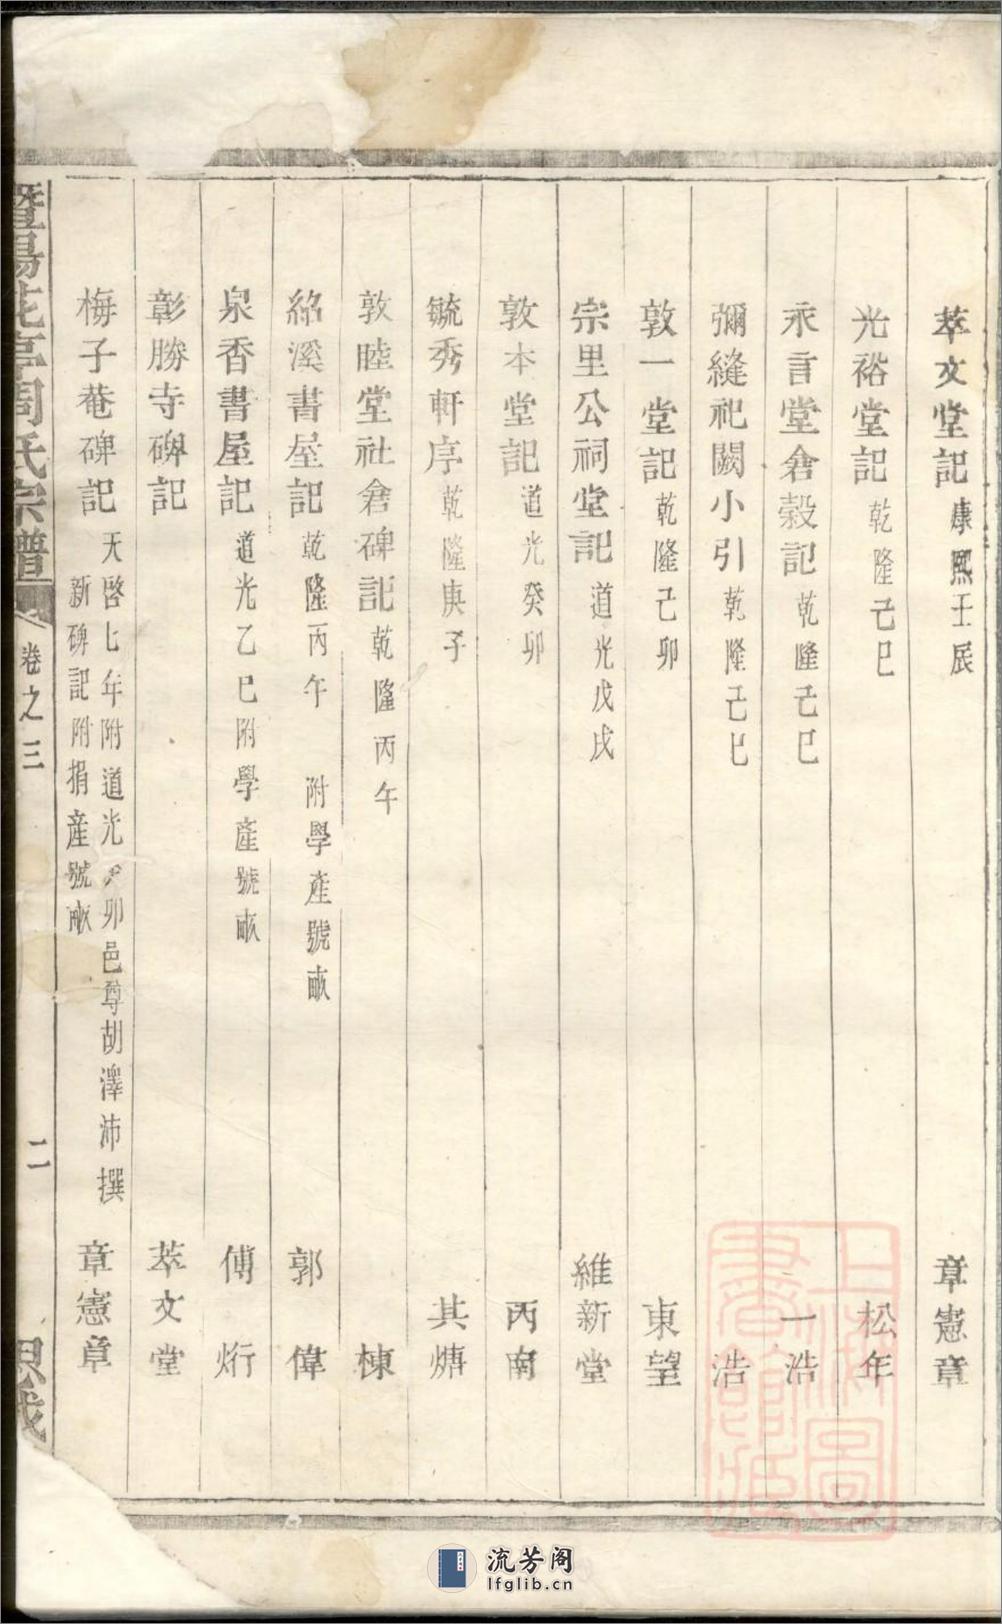 萃文堂記 康熙壬辰 章憲章
光裕堂記 乾隆己巳 松年
永言堂倉穀記 乾隆己巳 一浩
彌縫祀闕小引 乾隆己巳 浩
敦一堂記 乾隆己卯 東望
宗里公祠堂記 道光戊戌 維新堂
敦本堂記 道光癸卯 丙南
毓秀軒序 乾隆庚子 其煻
敦睦堂社倉碑記 乾隆丙午 棟
紹溪書屋記 乾隆丙午 附學產號畝 郭偉
泉香書屋記 道光乙巳附學產號畝 傅烆
彰勝寺碑記 萃文堂
梅子菴碑記 天啓七年附道光 卯邑尊胡澤沛撰
新碑記附捐產號畝 章憲章
暨陽花亭周氏宗譜 卷之三 二 思成
上海圖書館藏
流芳阁
lfglib.cn